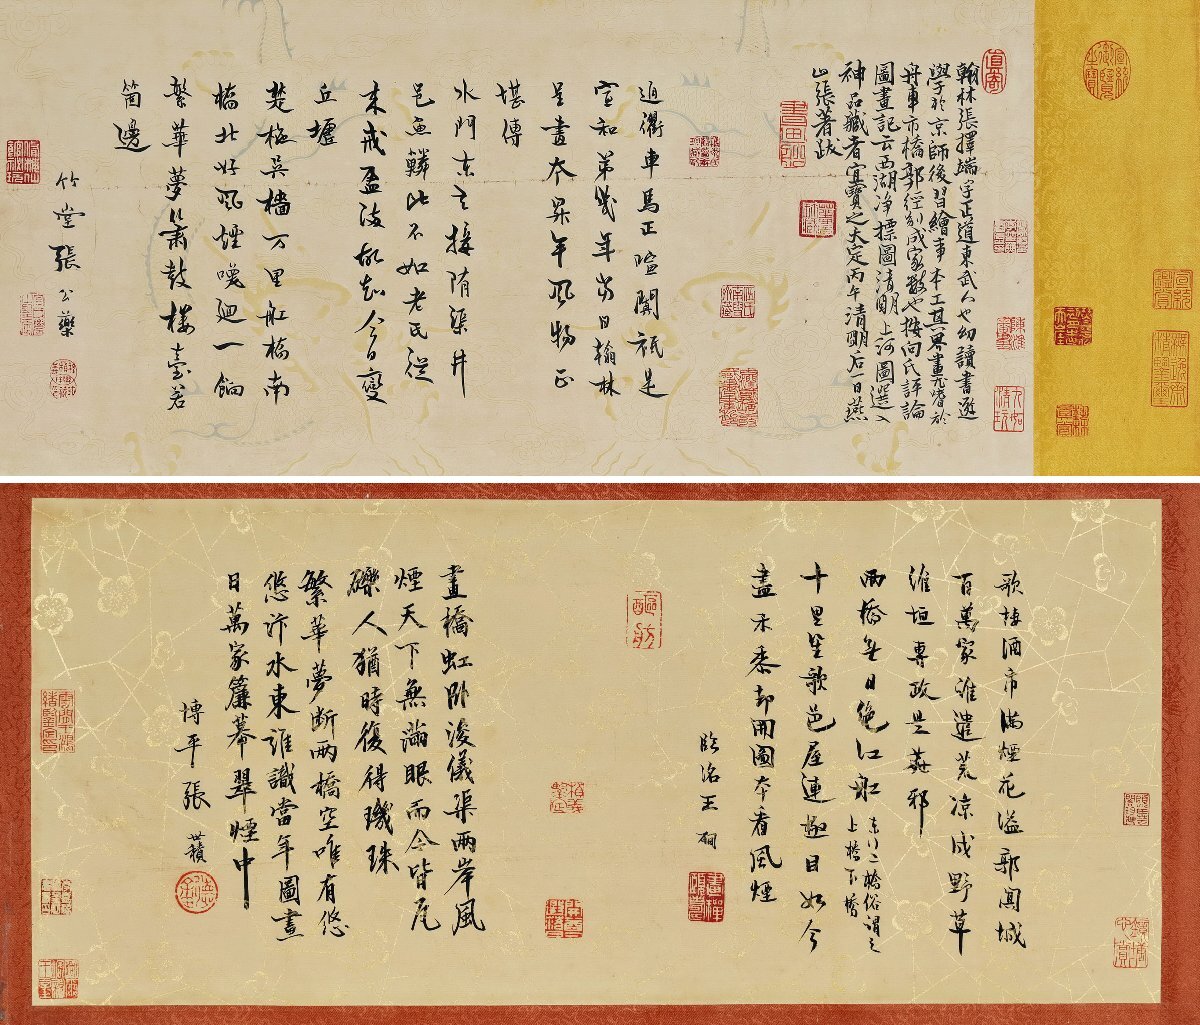 翰林張擇端字正道東武人也幼讀書遊
學於京師後習繪事本工其界畫尤嗜於
舟車市橋郭徑別成家數也按向氏評論
圖畫記云西湖淨標圖清明上河圖選入
神品藏者宜寶之大定丙午清明后一日燕
山張著跋
通衢車馬正喧闐祗是
宣和第幾年當日翰林
呈畫本昇平風物正
堪傳
水門東去接隋渠井
邑魚鱗比不如老氏從
來戒盈滿故知今日變
丘墟
楚柂吳檣万里舡橋南
橋北好風煙喚廻一餉
繁華夢簫鼓樓臺若
箇邊
竹堂張公藥
歌樓酒市滿煙花溢郭闐城
百萬家誰遣荒涼成野草
維垣專政是姦邪
兩橋無日絶江舡 東門二橋俗謂之上橋下橋
十里笙歌邑屋連極目如今
盡禾黍却開圖本看風煙
臨洺王磵
畫橋虹卧浚儀渠兩岸風
煙天下無滿眼而今皆瓦
礫人猶時復得璣珠
繁華夢斷兩橋空唯有悠
悠汴水東誰識當年圖畫
日萬家簾幕翠煙中
博平張世積